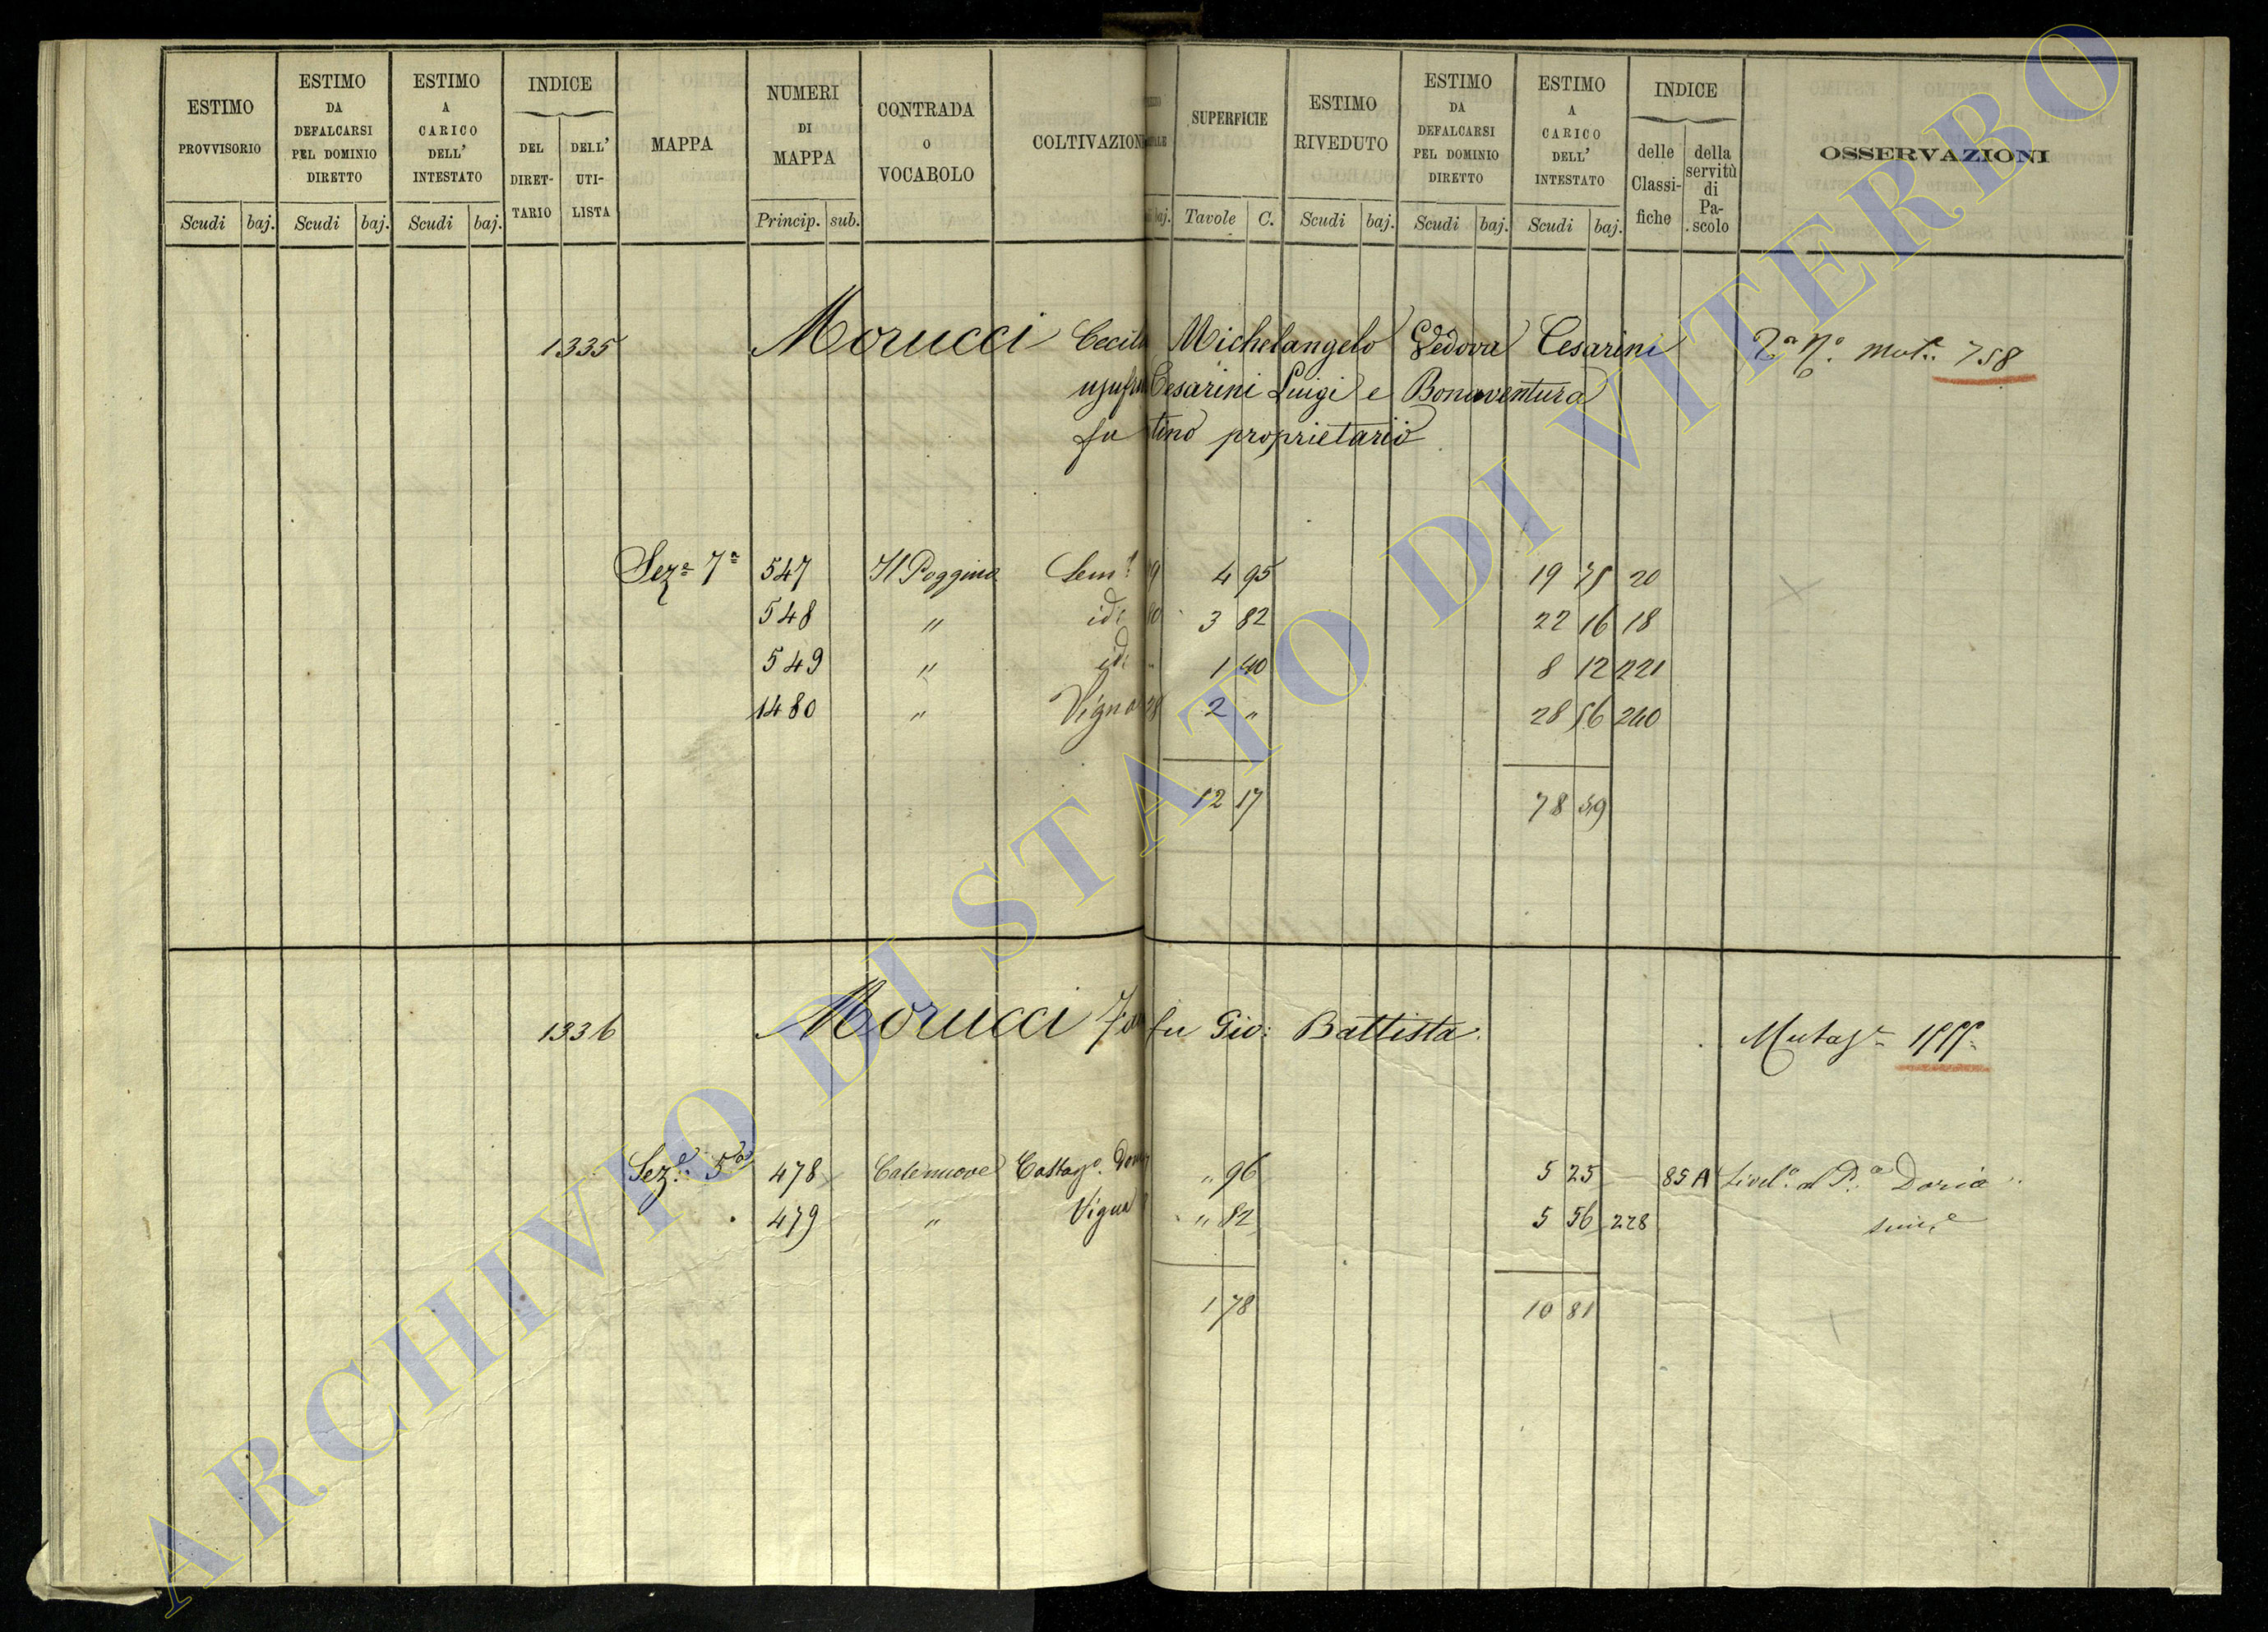 ESTIMO PROVVISORIO
Scudi baj.
ESTIMO DA DEFALCARSI PEL DOMINIO DIRETTO
Scudi baj.
ESTIMO A CARICO DELL' INTESTATO
Scudi baj.
INDICE
DEL DIRET-TARIO
DELL' UTI-LISTA
MAPPA
NUMERI DI MAPPA
Princip. sub.
CONTRADA O VOCABOLO
COLTIVAZION
baj.
SUPERFICIE
Tavole C.
ESTIMO RIVEDUTO
Scudi baj.
ESTIMO DA DEFALCARSI PEL DOMINIO DIRETTO
Scudi baj.
ESTIMO A CARICO DELL' INTESTATO
Scudi baj.
INDICE
delle Classi-fiche
della servitù di Pa-scolo
OSSERVAZIONI
1335 Morucci Cecili Michelangelo Vedova Cesarini 758
usufru Cesarini Luigi e Bonaventura
fu tino proprietario
Seza 7a 547 Il Poggino Semo 9 4 95 19 75 20
548 " id 3 82 22 16 18
549 " id " 1 40 8 12 221
1480 " Vigna 28 2 " 28 56 240
12 17 78 59
1336 Morucci fu Gio: Battista.
Seze 5a 478 Casenuove Castago. " 96 5 25 85 A Livel.o al Doria
479 " Vigna " 82 5 56 228
1 78 10 81
ARCHIVIO DI STATO DI VITERBO